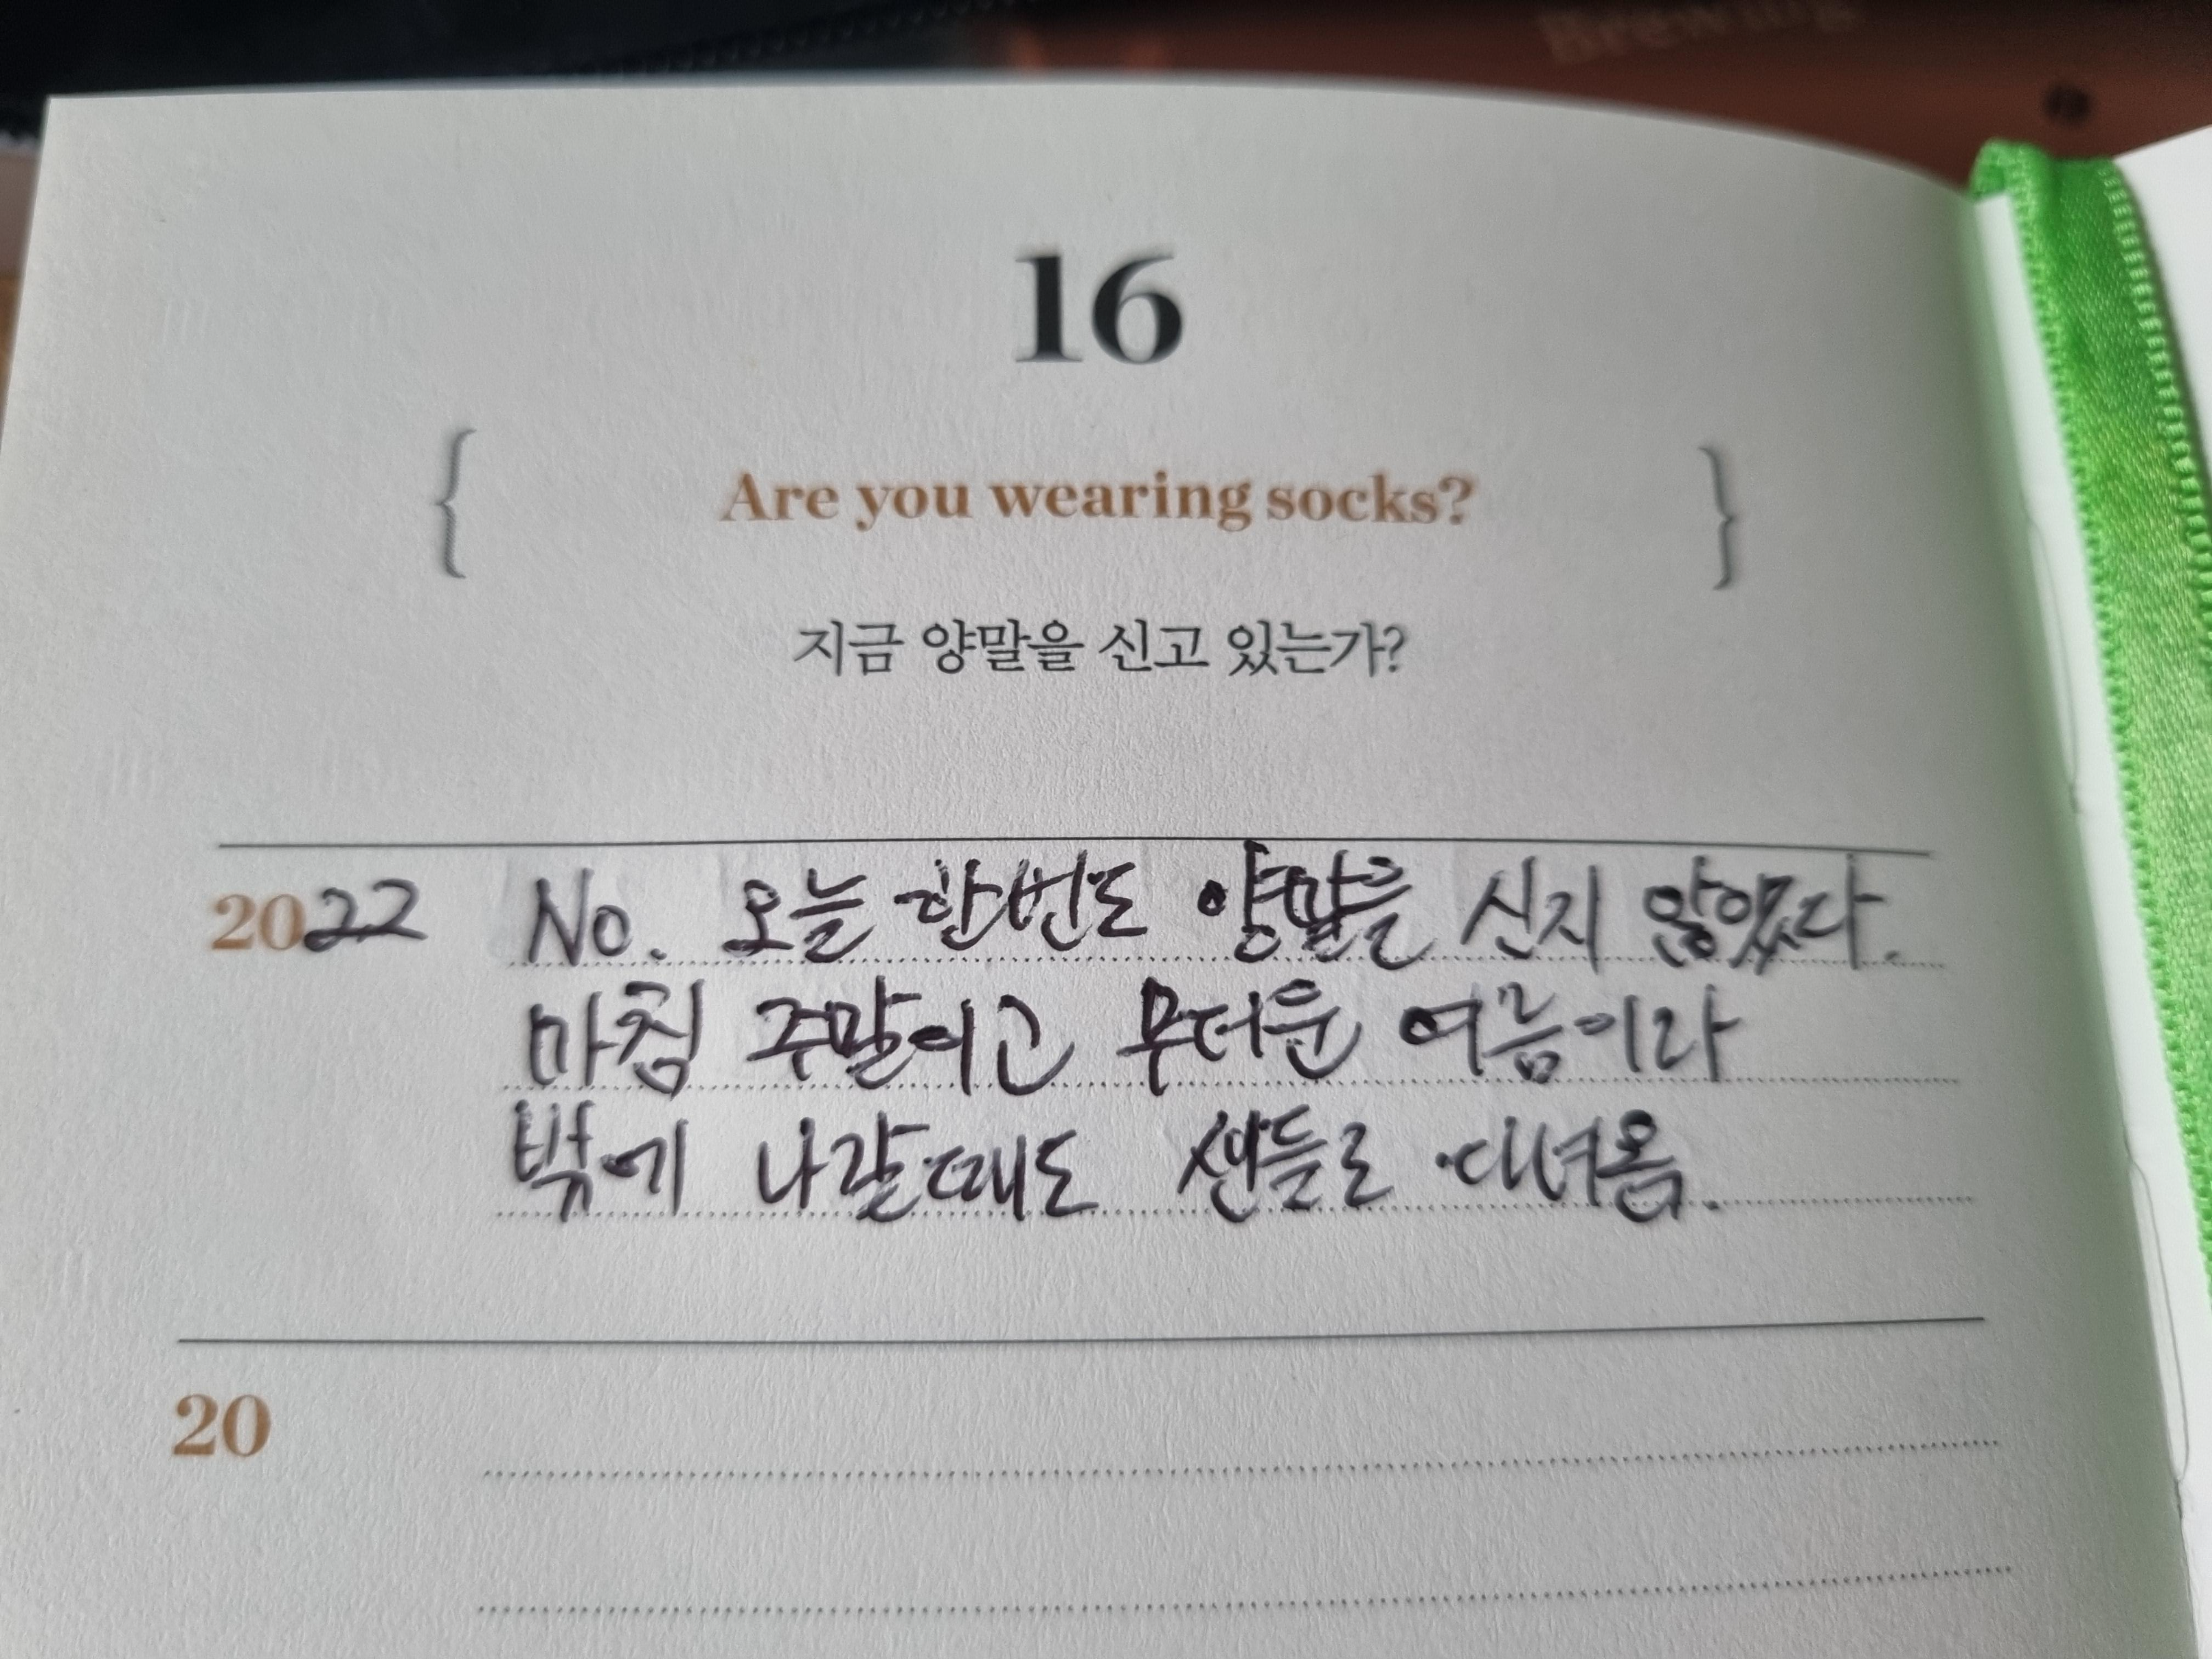 Brewing
16
{ Are you wearing socks? }
지금 양말을 신고 있는가?
2022 No. 오늘 한번도 양말을 신지 않았다.
마침 주말이고 무더운 여름이라
밖에 나갈때도 샌들로 다녀옴.
20